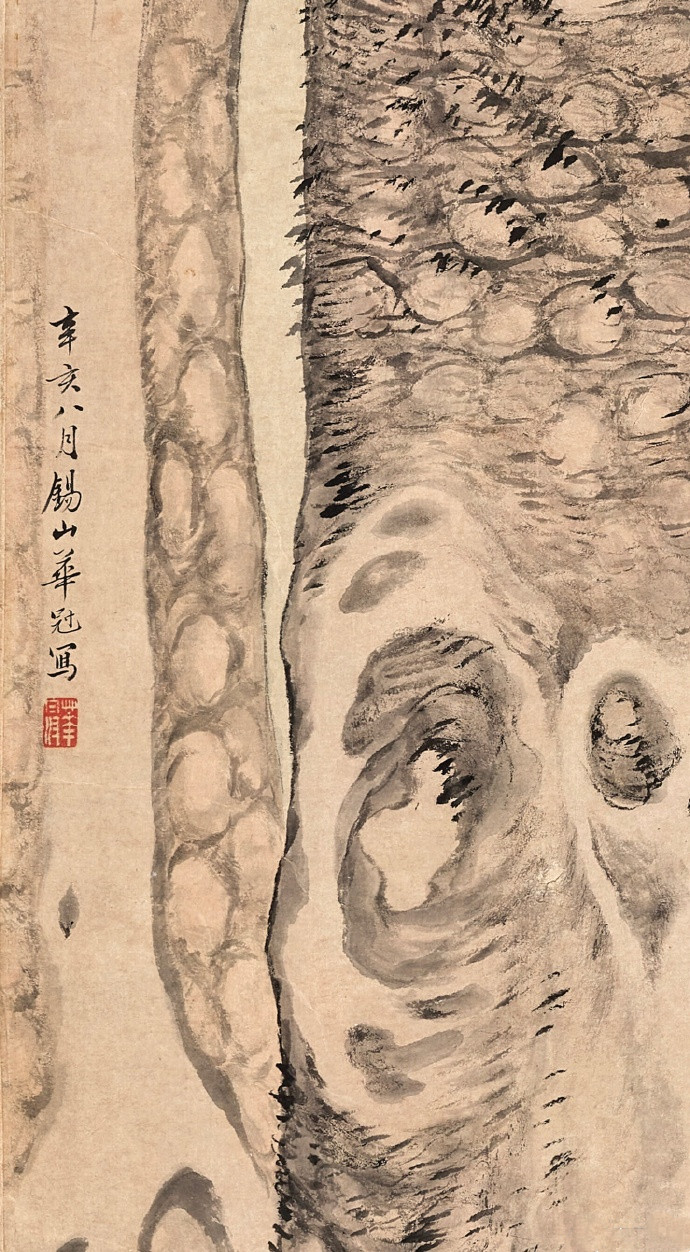 辛亥八月錫山華冠寫